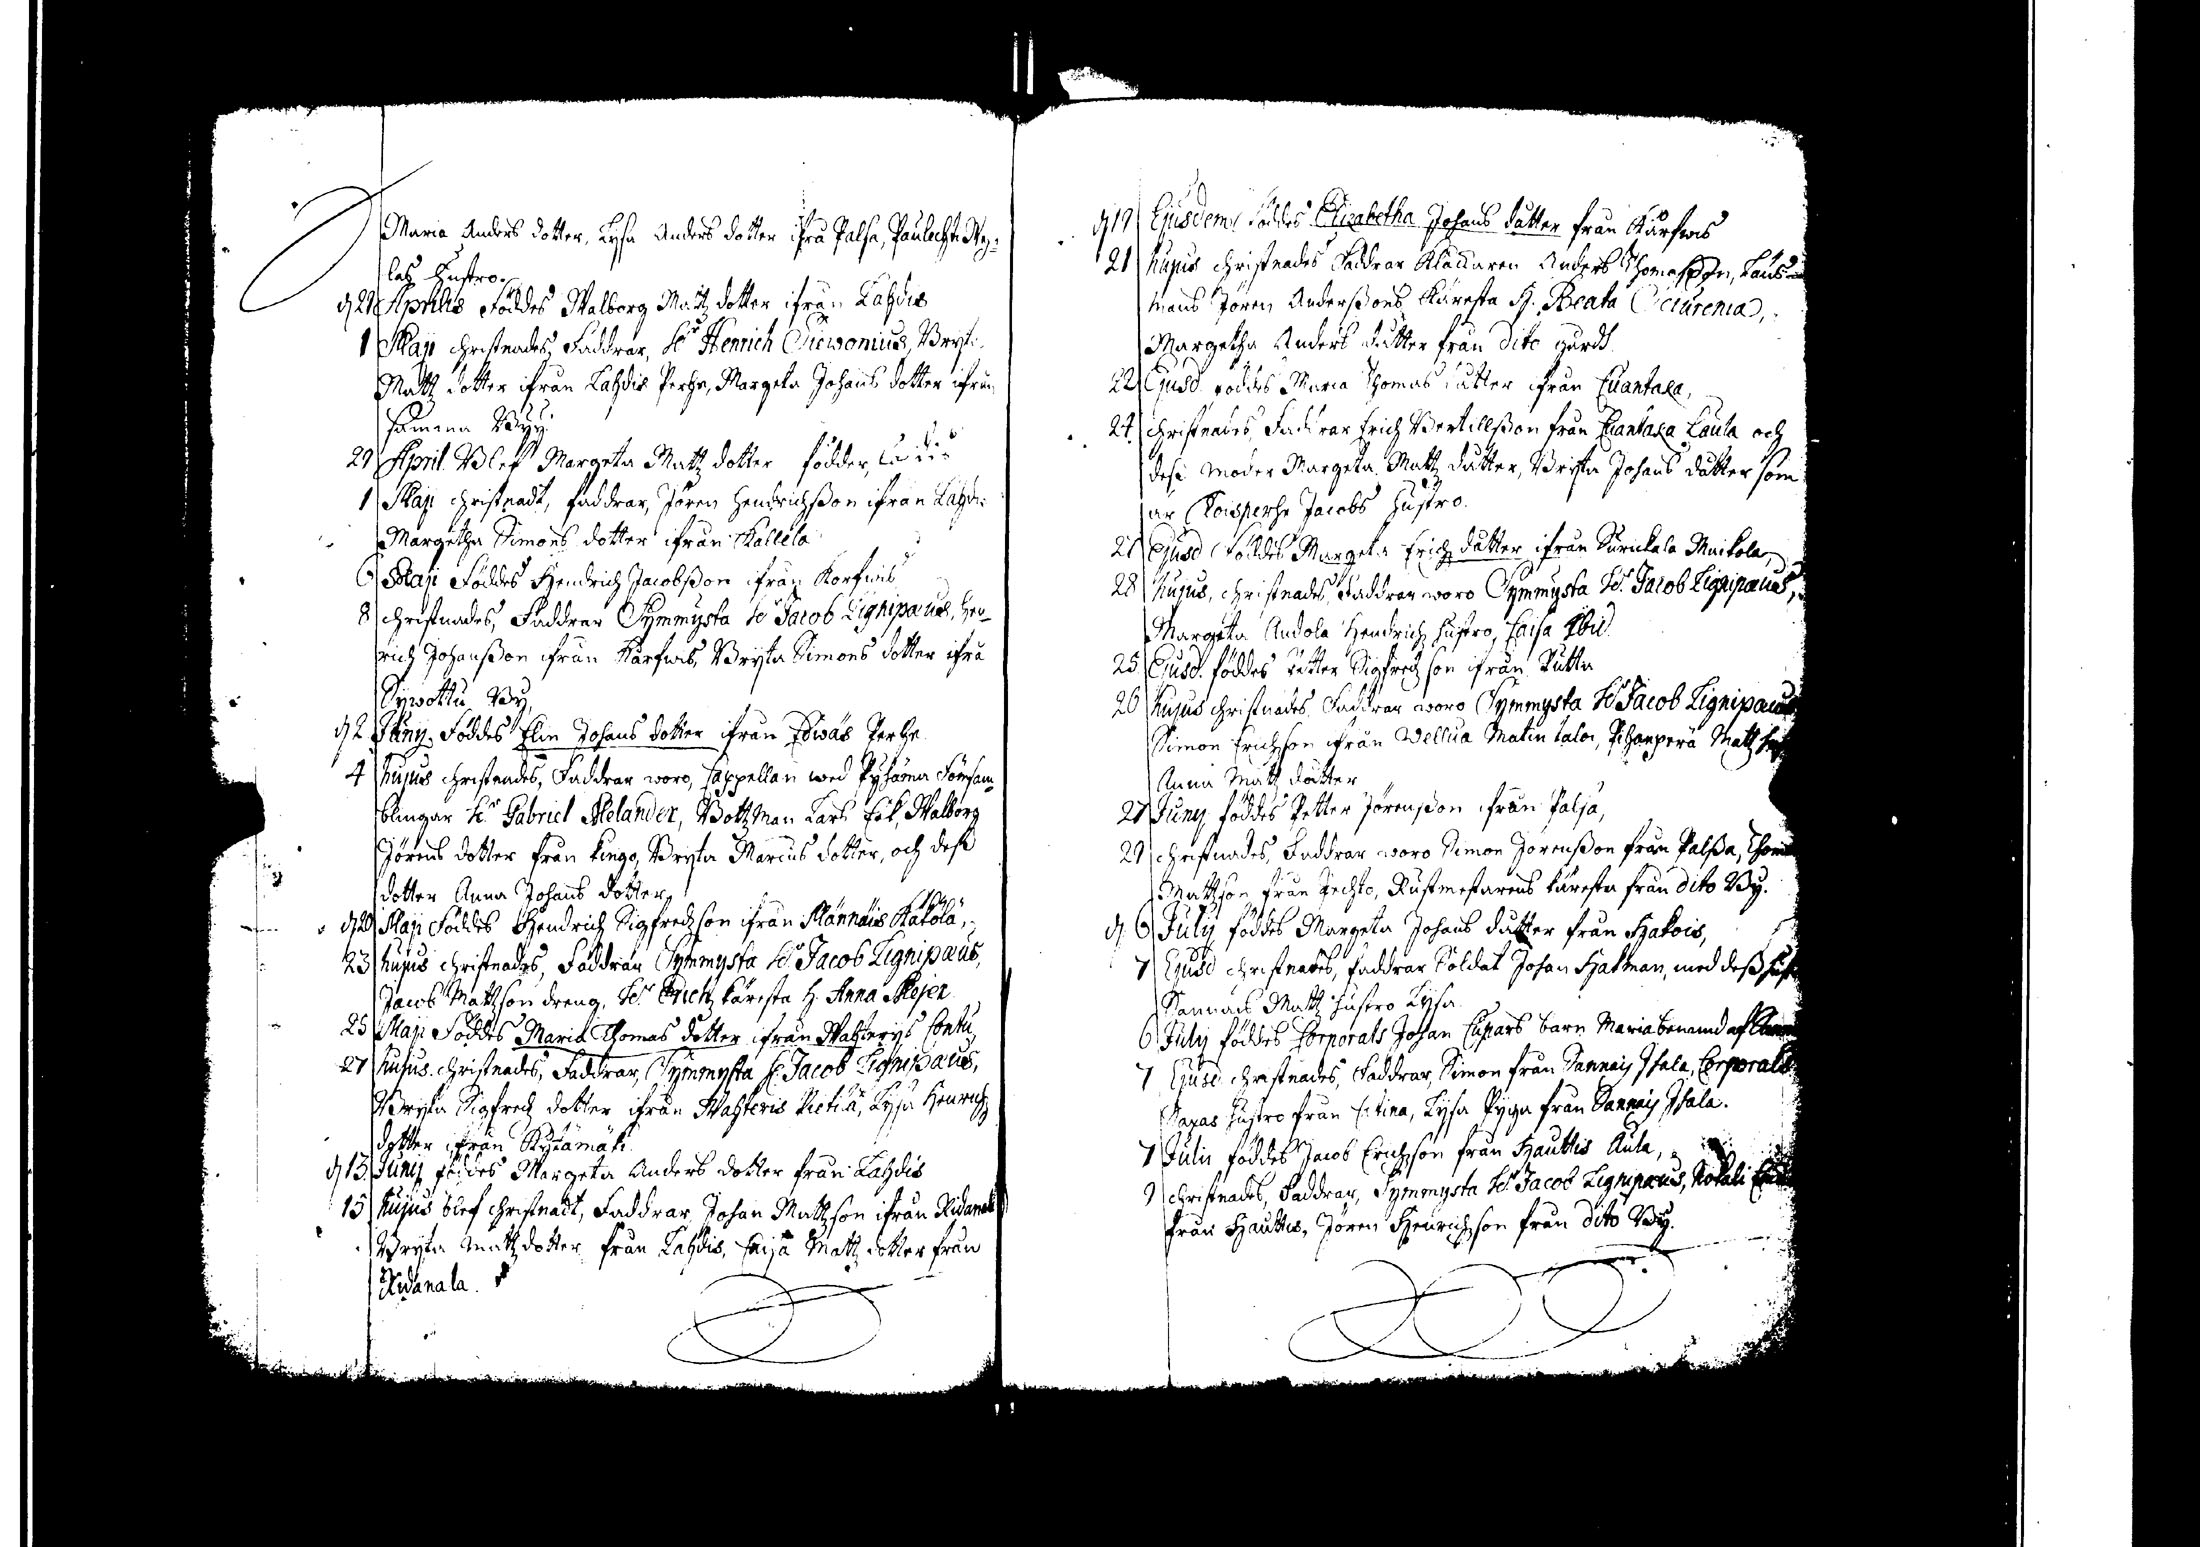 Maria Anders dotter, Lysa Anders dotter ifrå Palsa,
las Hustro.
d 29 Aprilis Föddes Walborg Matz dotter ifrån Lahdis
1 Maji christnades, Faddrar, Hr Henrich
Matz dotter ifrån Lahdis Perhe, Margeta Johans dotter ifrån
samma Byy.
29 April Blef Margeta Matz dotter födder,
1 Maji christnadt, faddrar, Jören Hendrichsson ifrån
Margetha Simons dotter ifrån Kallela
6 Maji Föddes Hendrich Jacobsson ifrån Korfwis
8 christnades, Faddrar Symmysta Hr Jacob Lignipæus, Hen-
rich Johansson ifrån Karfwis, Bryta Simons dotter ifrå
Sywottu By,
d 2 Juny, Föddes Elin Johans dotter ifrån Perhe
4 hujus christnades, Faddrar woro, Cappellan wed Pyhäma Försam-
blingar Hr Gabriel Melander, Bottzman Lars Ek, Walborg
Jörens dotter från Kingo, Bryta Marcus dotter, och dess
dotter Anna Johans dotter,
d 20 Maji Föddes Hendrich Sigfredzson ifrån Männäis Kakola,
23 hujus christnades, Faddrar Symmysta Hr Jacob Lignipæus,
Jacob Mattzson dreng, Hr Erich käresta H. Anna Mejer
25 Maji Föddes Maria Thomas dotter ifrån Wahterys Contu,
27 hujus christnades, Faddrar, Symmysta Hr Jacob Lignipæus,
Bryta Sigfredz dotter ifrån Wahteris Pietilä, Lysa Henrichz
dotter ifrån Kytämäki.
d 13 Juny föddes Margeta Anders dotter från Lahdis
15 hujus blef christnadt, Faddrar, Johan Mattzson ifrån
Bryta Matz dotter från Lahdis, Caisa Matz dotter från
Ridanala.
d 19 Ejusdem Föddes Elizabetha Johans dutter från Karfwis
21 hujus christnades Faddrar Klåckaren Anders Thomasson,
mans Jören Anderssons Käresta H. Beata
Margetha Anders dutter från dito
22 Ejusd föddes Maria Thomas dutter ifrån
24 christnades, Faddrar Erich Bertillsson från Laula och
dess moder Margeta Matz dutter, Bryta Johans dutter som
är Jacobs Hustro.
27 Ejusd Föddes Margeta Erichz dutter ifrån Surickala Maikola,
28 hujus, christnades, Faddrar woro Symmysta Hr Jacob Lignipæus,
Margeta Andola Hendrichz hustro, Caisa Ibid.
25 Ejusd. föddes Petter Sigfredzson ifrån
26 hujus christnades Faddrar woro Symmysta Hr Jacob Lignipæus
Simon Erichsson ifrån Wellua Matin talo, Matz
Anna Matz dutter
27 Juny föddes Petter Jörensson ifrån Palsa,
29 christnades, Faddrar woro Simon Jörensson från Palssa,
Mattzson från Jechto, Rustmestarens käresta från dito By.
d 6 July föddes Margeta Johans dutter från Hakois,
7 Ejusd christnades, faddrar Soldat Johan Hakman, med dess
Sannais Matz hustro Lysa.
6 July föddes Corporals Johan Cupars barn Maria benämd af
7 Ejusd christnades, Faddrar, Simon från Sannais Isala, Corporals
hustro från Lysa Pyga från Sannais Isala.
7 Julii föddes Jacob Erichzson från Hauttis Aula,
9 christnades, Faddrar, Symmysta Hr Jacob Lignipæus,
från Hauttis, Jören Henrichson från dito By.